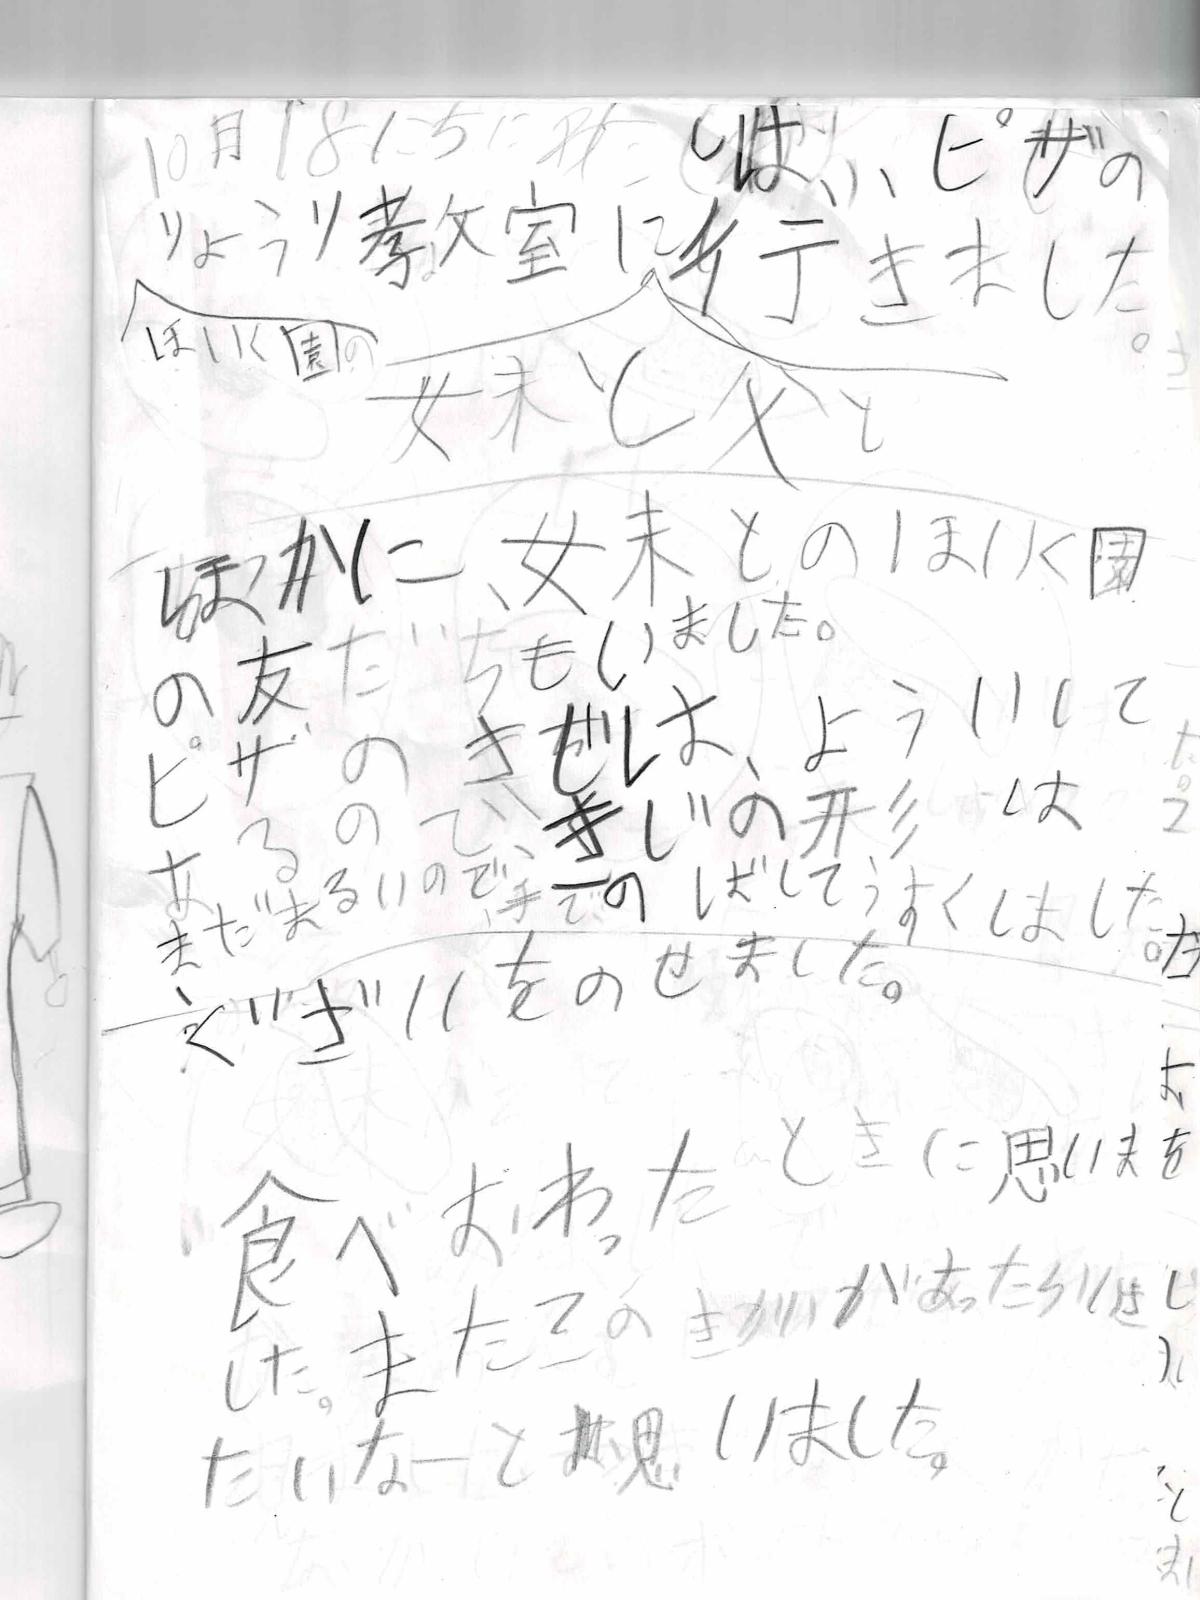 10月18にちに私は、ピザの
りょうり教室に行きました。
ほいく園の
妹と父と
ほかに、妹とのほいく園
の友だちもいました。
ピザのきじは、よういして
なるので、きじの形は
まだまるいので、手でのばしてうすくしました。
ぐざいをのせました。
食べおわったときに思いま
した。またこのきかいがあったらいき
たいなーと思いました。